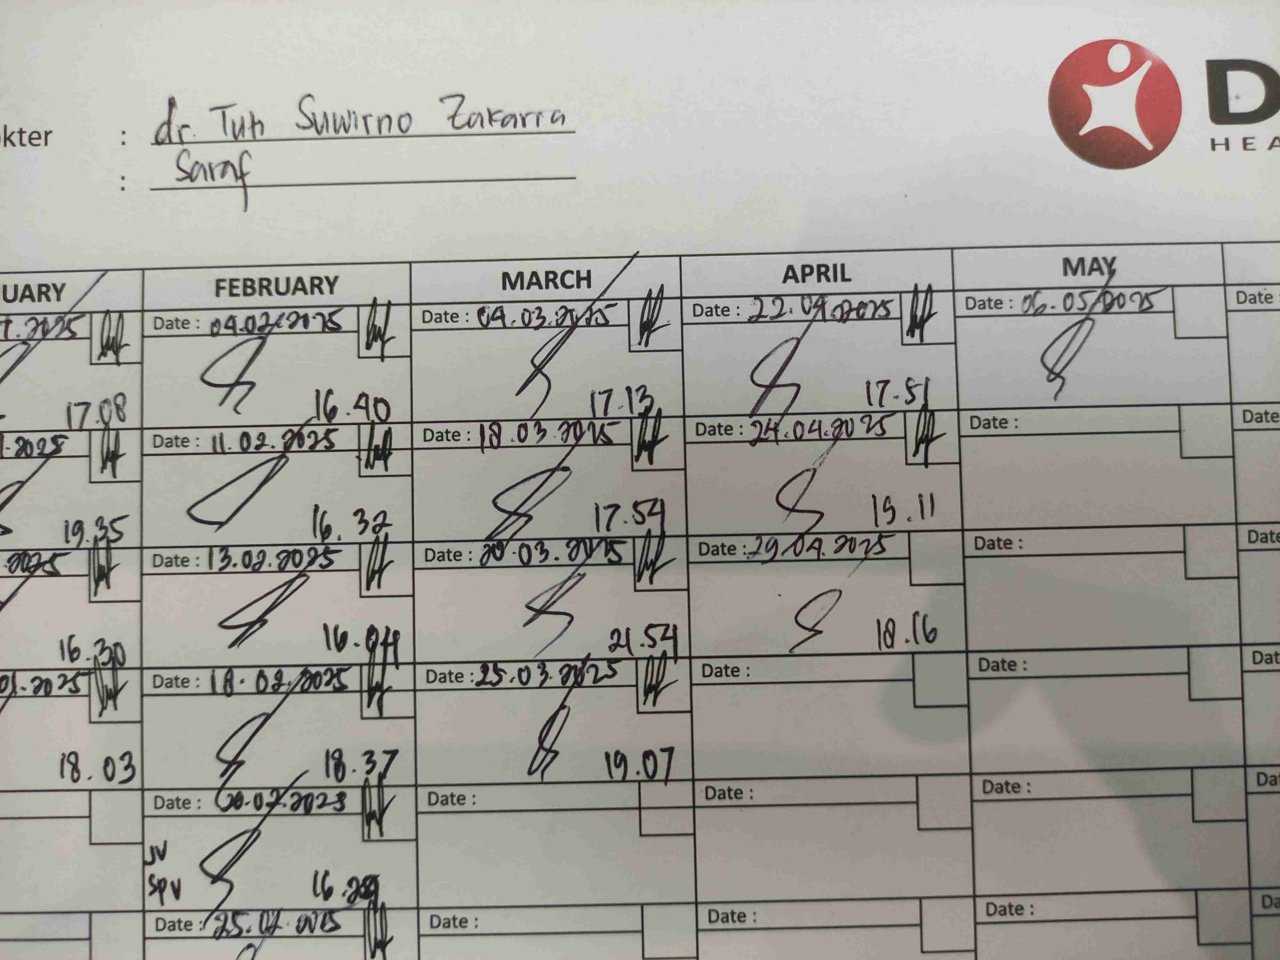 kter : dr. Tuti Suwirno Zakaria
: Saraf
D
HEA
UARY FEBRUARY MARCH APRIL MAY
.2025 Date : 04.02.2025 Date : 04.03.2025 Date : 22.04.2025 Date : 06.05.2025 Date
17.08 16.40 17.13 17.51
.2025 Date : 11.02.2025 Date : 18.03.2025 Date : 24.04.2025 Date : Date
19.35 16.32 17.54 19.11
.2025 Date : 13.02.2025 Date : 20.03.2025 Date : 29.04.2025 Date : Date
16.30 16.04 21.54 18.16
01.2025 Date : 18.02.2025 Date : 25.03.2025 Date : Date : Dat
18.03 18.37 19.07
Date : 20.02.2025 Date : Date : Date : Da
JV
SPV 16.29
Date : 25.02.2025 Date : Date : Date : Da